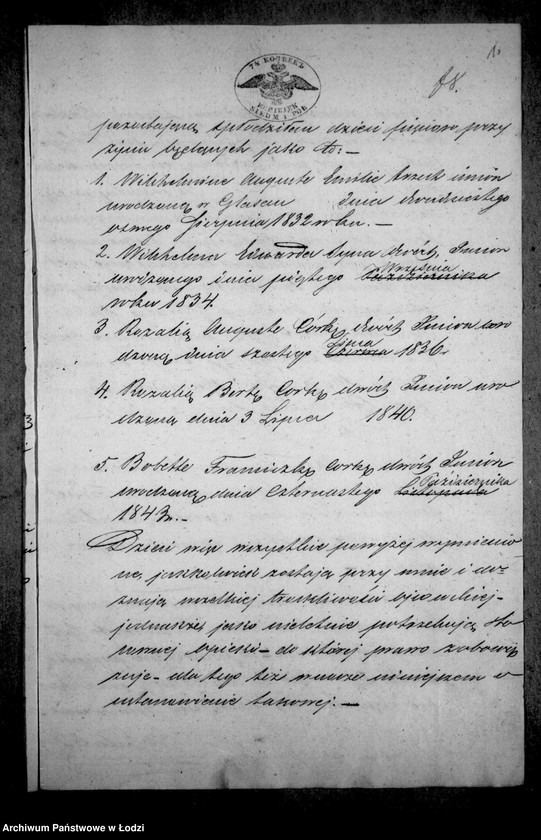 7½ КОПѢЕКЪ
KOPIEIEK
1.
68.
pozostającą spłodziłem dzieci pięcioro przy
życiu będących jako to: —
1. Wilhelminę Auguste Emilie trzech imion
urodzoną w dnia dwudziestego
ósmego Sierpnia 1832 roku. —
2. Wilhelma Edwarda Syna dwóch Imion
urodzonego dnia piątego Października Września
roku 1834
3. Rozalią Auguste Córkę dwóch Imion uro
dzoną dnia szóstego Czerwca Lipca 1836.
4. Rozalią Bertę Córkę dwóch Imion uro
dzoną dnia 3 Lipca 1840.
5. Babette Franciszkę Córkę dwóch Imion
urodzoną dnia Czternastego Listopada Października
1843 r. —
Dzieci więc wszystkie powyżej wymienio
ne, jakkolwiek zostają przy mnie i do
znają wszelkiej troskliwości ojcowskiej —
jednakże jako nieletnie potrzebują
opieki — do której prawo zobowią
zuje — dla tego też wnoszę niniejszem o
ustanowienie takowej. —
Archiwum Państwowe w Łodzi